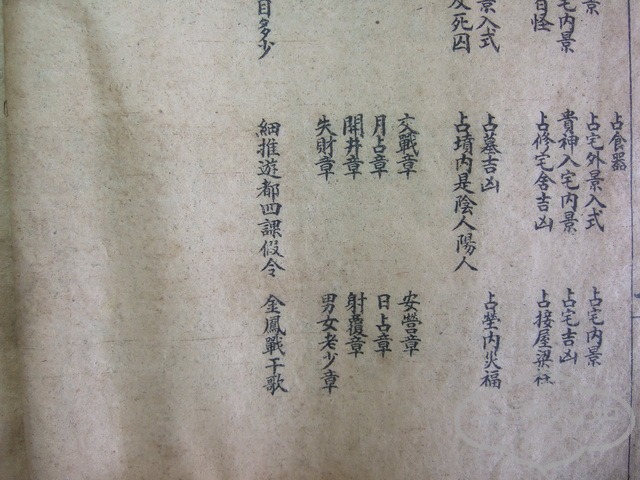 占食器
景 占宅外景入式 占宅内景
宅内景 貴神入宅内景 占宅吉凶
百怪 占修宅舍吉凶 占接屋梁柱
景入式 占墓吉凶 占塋内災福
及死囚 占墳内是陰人陽人
交戰章 安營章
月占章 日占章
開井章 射覆章
失財章 男女老少章
目多少 細推遊都四課假令 金鳳戰干歌